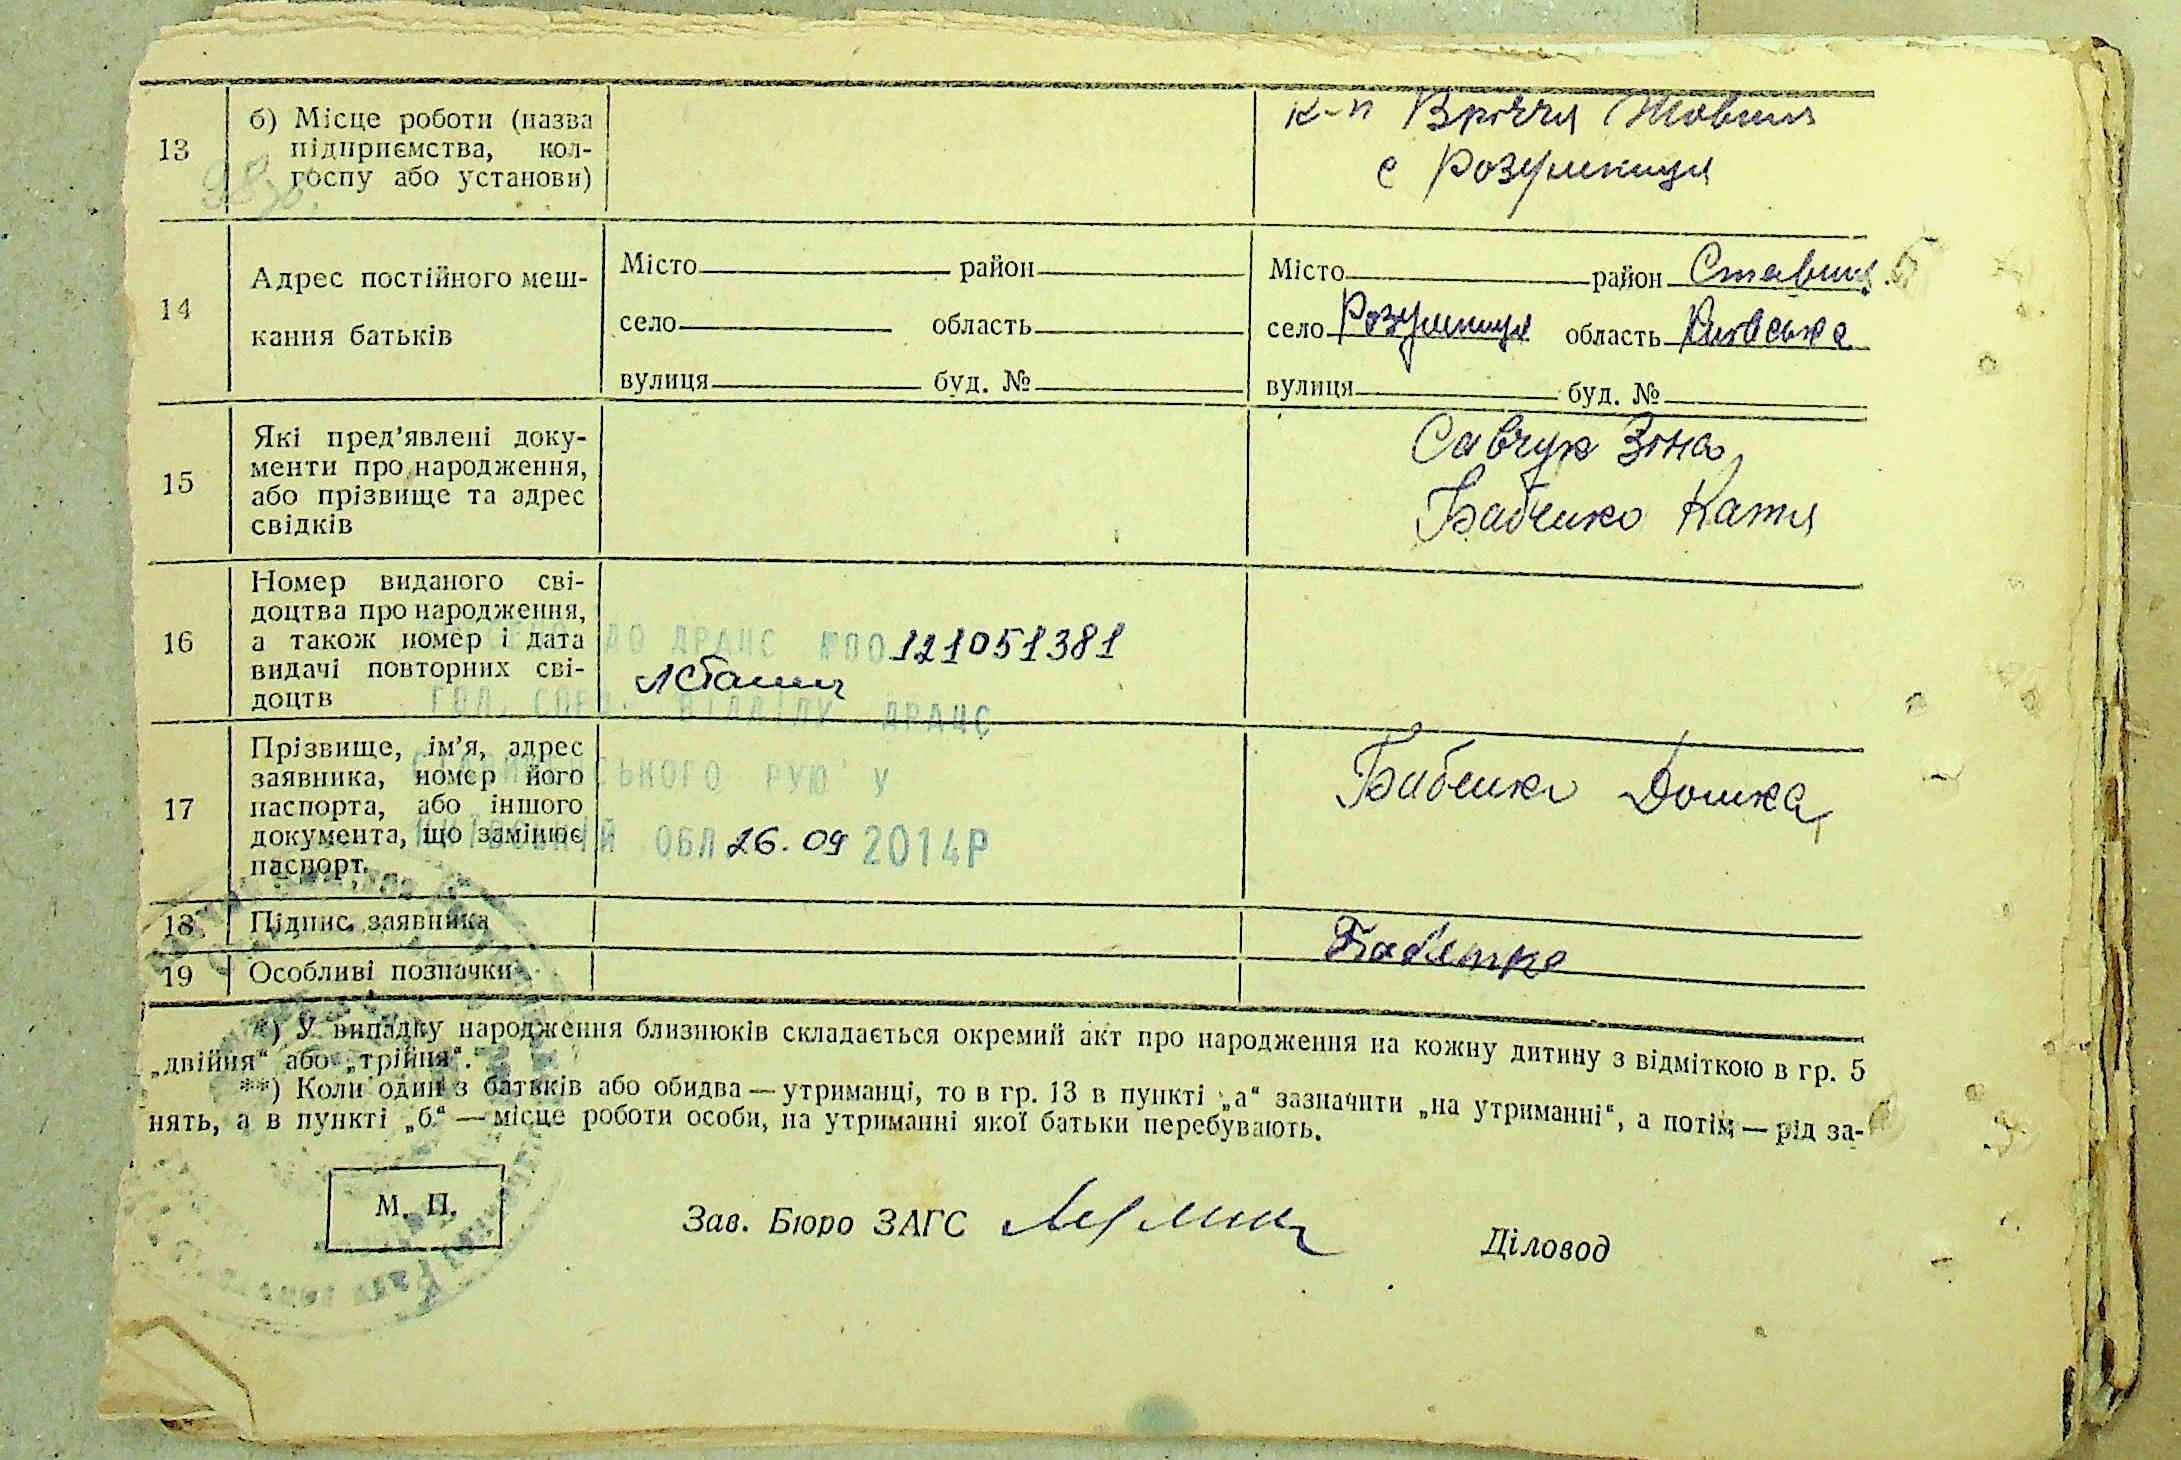 13
б) Місце роботи (назва
підприємства, кол-
госпу або установи)
к-п Вріччя Жовтня
с Розумниця
14
Адрес постійного меш-
кання батьків
Місто район
село область
вулиця буд. №
Місто район Ставищ.
село Розумниця область Київська
вулиця буд. №
15
Які пред’явлені доку-
менти про народження,
або прізвище та адрес
свідків
Савчук Зіна
Бабенко Катя
16
Номер виданого сві-
доцтва про народження,
а також номер і дата
видачі повторних сві-
доцтв
ДО ДРАЦС №00121051381
ГОЛ. СПЕЦ. ВІДДІЛУ ДРАЦС
17
Прізвище, ім’я, адрес
заявника, номер його
паспорта, або іншого
документа, що замінює
паспорт.
СЬКОГО РУЮ У
ОБЛ 26.09 2014Р
Бабенко Домка
18
Підпис заявника
Бабенко
19
Особливі позначки
*) У випадку народження близнюків складається окремий акт про народження на кожну дитину з відміткою в гр. 5
„двійня“ або „трійня“.
**) Коли один з батьків або обидва — утриманці, то в гр. 13 в пункті „а“ зазначити „на утриманні“, а потім — рід за-
нять, а в пункті „б“ — місце роботи особи, на утриманні якої батьки перебувають.
М. П.
Зав. Бюро ЗАГС
Діловод